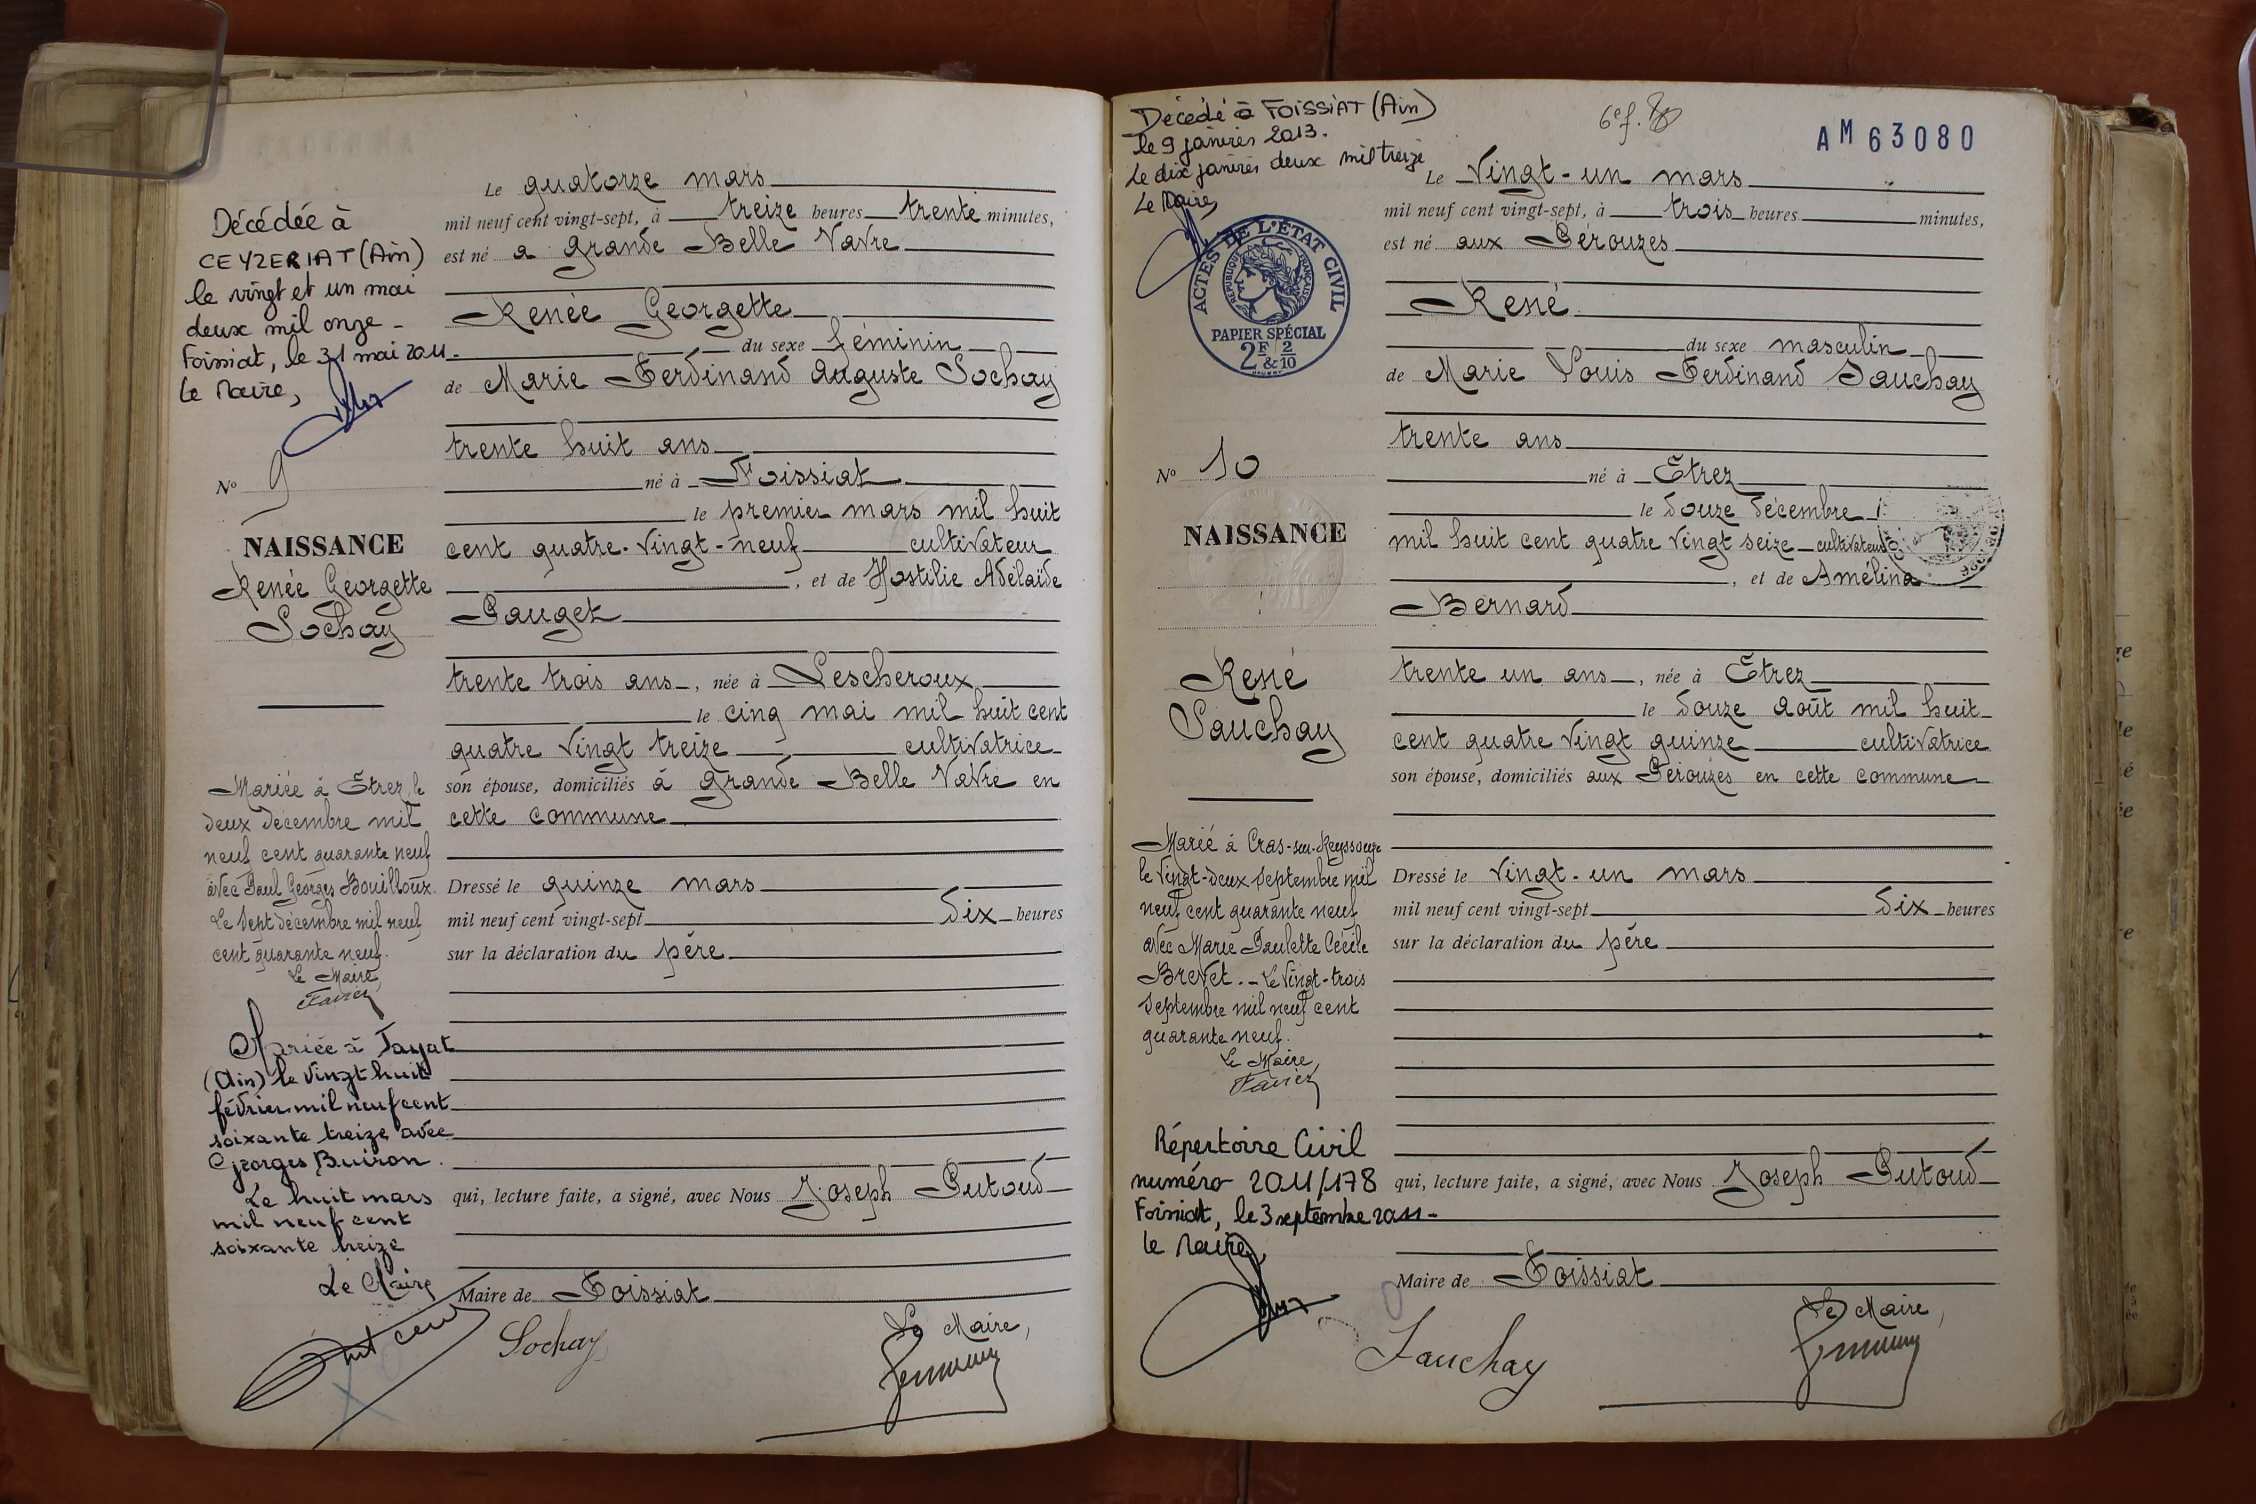 Décédée à
CEYZERIAT (Ain)
le vingt et un mai
deux mil onze -
Foissiat, le 31 mai 2011.
Le Maire,
N° 9
NAISSANCE
Renée Georgette
Sochay
Mariée à Etrez, le
deux décembre mil
neuf cent quarante neuf
avec Paul Georges Bouilloux.
Le sept décembre mil neuf
cent quarante neuf.
Le Maire,
Favier
Mariée à Jayat
(Ain) le vingt huit
février mil neuf cent
soixante treize avec
Georges Buiron.
Le huit mars
mil neuf cent
soixante treize
Le Maire
Le quatorze mars
mil neuf cent vingt-sept, à treize heures trente minutes,
est né a grande Belle Vavre
Renée Georgette
du sexe féminin
de Marie Ferdinand Auguste Sochay
trente huit ans
né à Foissiat
le premier mars mil huit
cent quatre-vingt-neuf cultivateur
, et de Hostilie Adélaïde
Pauget
trente trois ans, née à Lescheroux
le cinq mai mil huit cent
quatre vingt treize cultivatrice
son épouse, domiciliés à grande Belle Vavre en
cette commune
Dressé le quinze mars
mil neuf cent vingt-sept dix heures
sur la déclaration du père
qui, lecture faite, a signé, avec Nous Joseph Putoud
Maire de Foissiat
Sochay
Le Maire,
Décédé à FOISSIAT (Ain)
le 9 janvier 2013.
Le dix janvier deux mil treize
Le Maire,
ACTES DE L'ÉTAT CIVIL
RÉPUBLIQUE FRANÇAISE
PAPIER SPÉCIAL
2F & 2/10
6e f.
AM 63080
N° 10
NAISSANCE
René
Sauchay
Marié à Cras-sur-Reyssouze
le vingt-deux septembre mil
neuf cent quarante neuf
avec Marie Paulette Cécile
Brevet. - Le vingt-trois
septembre mil neuf cent
quarante neuf.
Le Maire,
Favier
Répertoire Civil
numéro 2011/178
Foissiat, le 3 septembre 2011 -
Le Maire,
Le Vingt-un mars
mil neuf cent vingt-sept, à trois heures minutes,
est né aux Pérouzes
René
du sexe masculin
de Marie Louis Ferdinand Sauchay
trente ans
né à Etrez
le douze décembre
mil huit cent quatre vingt seize cultivateur
, et de Amélina
Bernard
trente un ans, née à Etrez
le douze août mil huit
cent quatre vingt quinze cultivatrice
son épouse, domiciliés aux Pérouzes en cette commune
Dressé le vingt-un mars
mil neuf cent vingt-sept dix heures
sur la déclaration du père
qui, lecture faite, a signé, avec Nous Joseph Putoud
Maire de Foissiat
Sauchay
Le Maire,